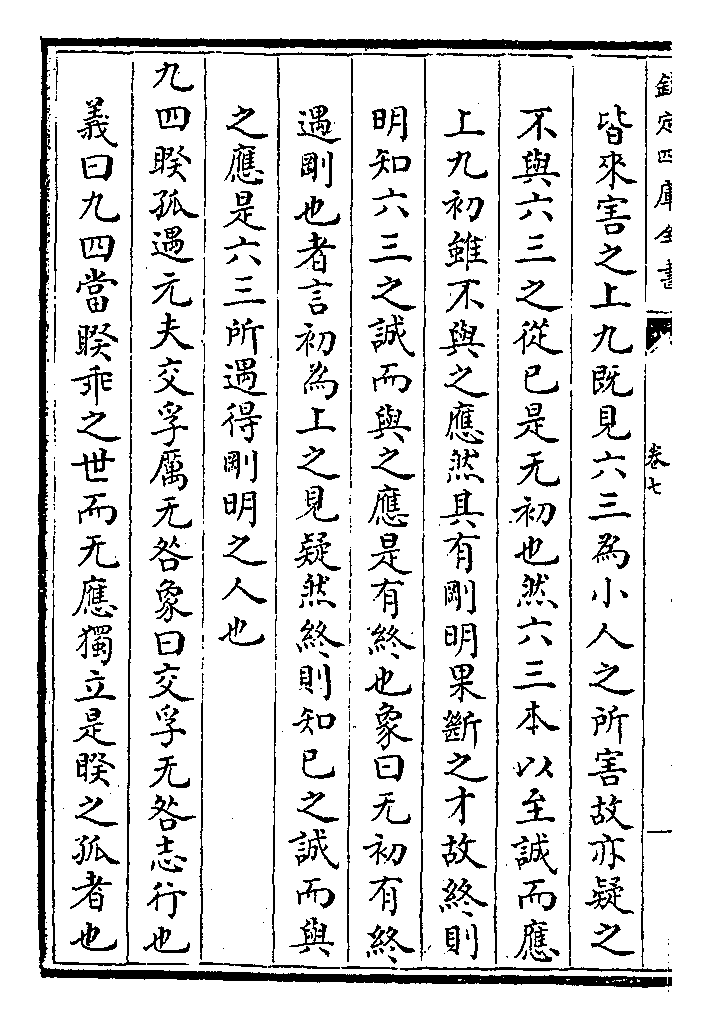 欽定四庫全書
卷七
皆來害之上九既見六三為小人之所害故亦疑之
不與六三之從已是无初也然六三本以至誠而應
上九初雖不與之應然具有剛明果斷之才故終則
明知六三之誠而與之應是有終也象曰无初有終
遇剛也者言初為上之見疑然終則知已之誠而與
之應是六三所遇得剛明之人也
九四睽孤遇元夫交孚厲无咎象曰交孚无咎志行也
義曰九四當睽乖之世而无應獨立是睽之孤者也